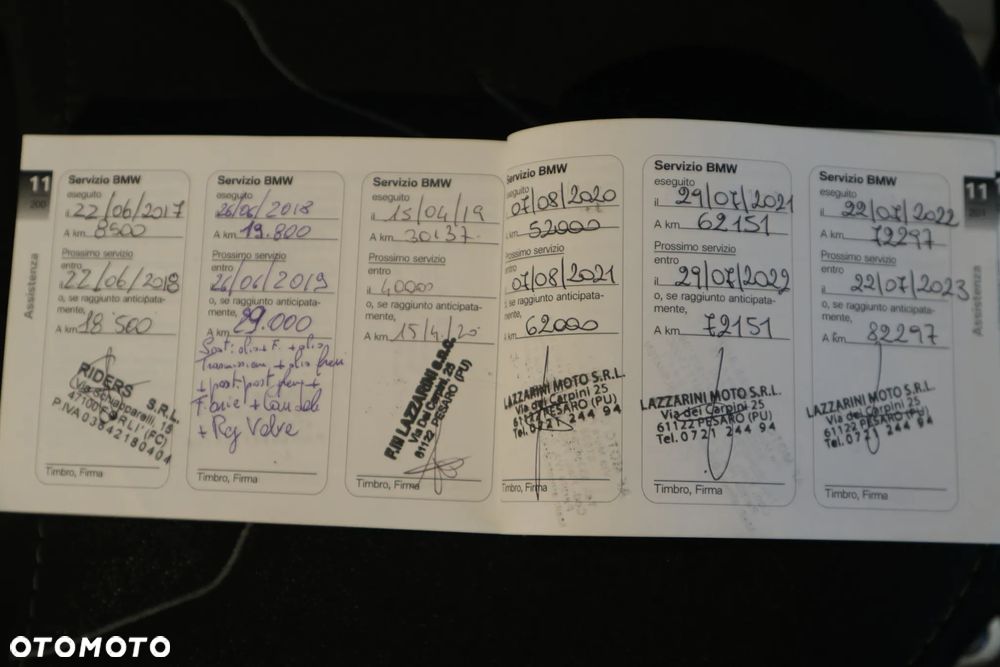 11
200
Assistenza
Servizio BMW
eseguito
il 22/06/2017
A km 8500
Prossimo servizio
entro
il 22/06/2018
o, se raggiunto anticipata-
mente,
A km 18 500
RIDERS S.R.L.
Via Schiapparelli, 15
47100 FORLI' (FC)
P.IVA 03642180404
Timbro, Firma
Servizio BMW
eseguito
26/06/2018
A km 19.800
Prossimo servizio
entro
26/06/2019
o, se raggiunto anticipata-
mente,
A km 29.000
Sost: olio + F. + olio
Trasmissione + olio freni
F. aria + Candele
+ Reg Valvole
Timbro, Firma
Servizio BMW
eseguito
il 15/04/19
A km 30137
Prossimo servizio
entro
il 40000
o, se raggiunto anticipata-
mente,
A km 15/4/20
F.lli LAZZARINI s.r.l.
Via Dei Carpini, 25
61122 PESARO (PU)
Timbro, Firma
Servizio BMW
eseguito
07/08/2020
km 52000
Prossimo servizio
entro
07/08/2021
o, se raggiunto anticipata-
mente,
62000
LAZZARINI MOTO S.R.L.
Via dei Carpini 25
61122 PESARO (PU)
Tel. 0721 244 94
Timbro, Firma
Servizio BMW
eseguito
il 29/07/2021
A km 62151
Prossimo servizio
entro
il 29/07/2022
o, se raggiunto anticipata-
mente,
A km 72151
LAZZARINI MOTO S.R.L.
Via dei Carpini 25
61122 PESARO (PU)
Tel. 0721 244 94
Timbro, Firma
Servizio BMW
eseguito
il 22/07/2022
A km 72297
Prossimo servizio
entro
il 22/07/2023
o, se raggiunto anticipata-
mente,
A km 82297
LAZZARINI MOTO S.R.L.
Via dei Carpini 25
61122 PESARO (PU)
Tel. 0721 244 94
Timbro, Firma
11
201
Assistenza
OTOMOTO